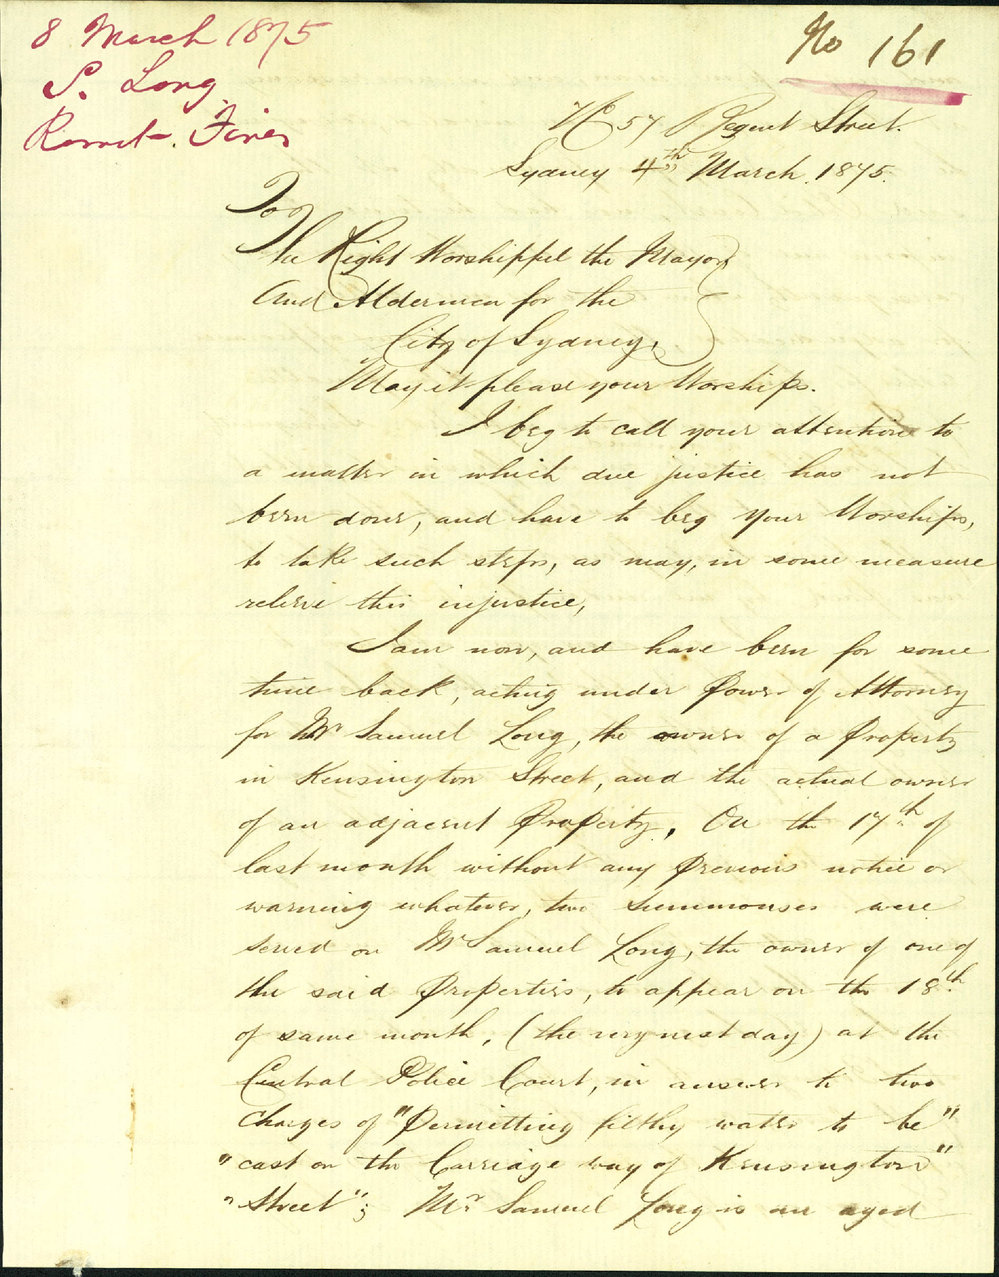 8 March 1875
S. Long
Remit. Fines
No 161
No 57 Regent Street.
Sydney 4th March. 1875.
To
The Right Worshipful the Mayor
And Aldermen for the
City of Sydney,
May it please your Worships.
I beg to call your attention to
a matter in which due justice has not
been done, and have to beg your Worships,
to take such steps, as may, in some measure
relieve this injustice,
I am now, and have been for some
time back, acting under Power of Attorney
for Mr Samuel Long, the owner of a Property
in Kensington Street, and the actual owner
of an adjacent Property. On the 17th of
last month without any previous notice or
warning whatever, two summonses were
served on Mr Samuel Long, the owner of one of
the said Properties, to appear on the 18th
of same month, (the very next day) at the
Central Police Court, in answer to two
charges of "Permitting filthy water to be"
"cast on the Carriage way of Kensington"
"Street"; Mr Samuel Long is an aged